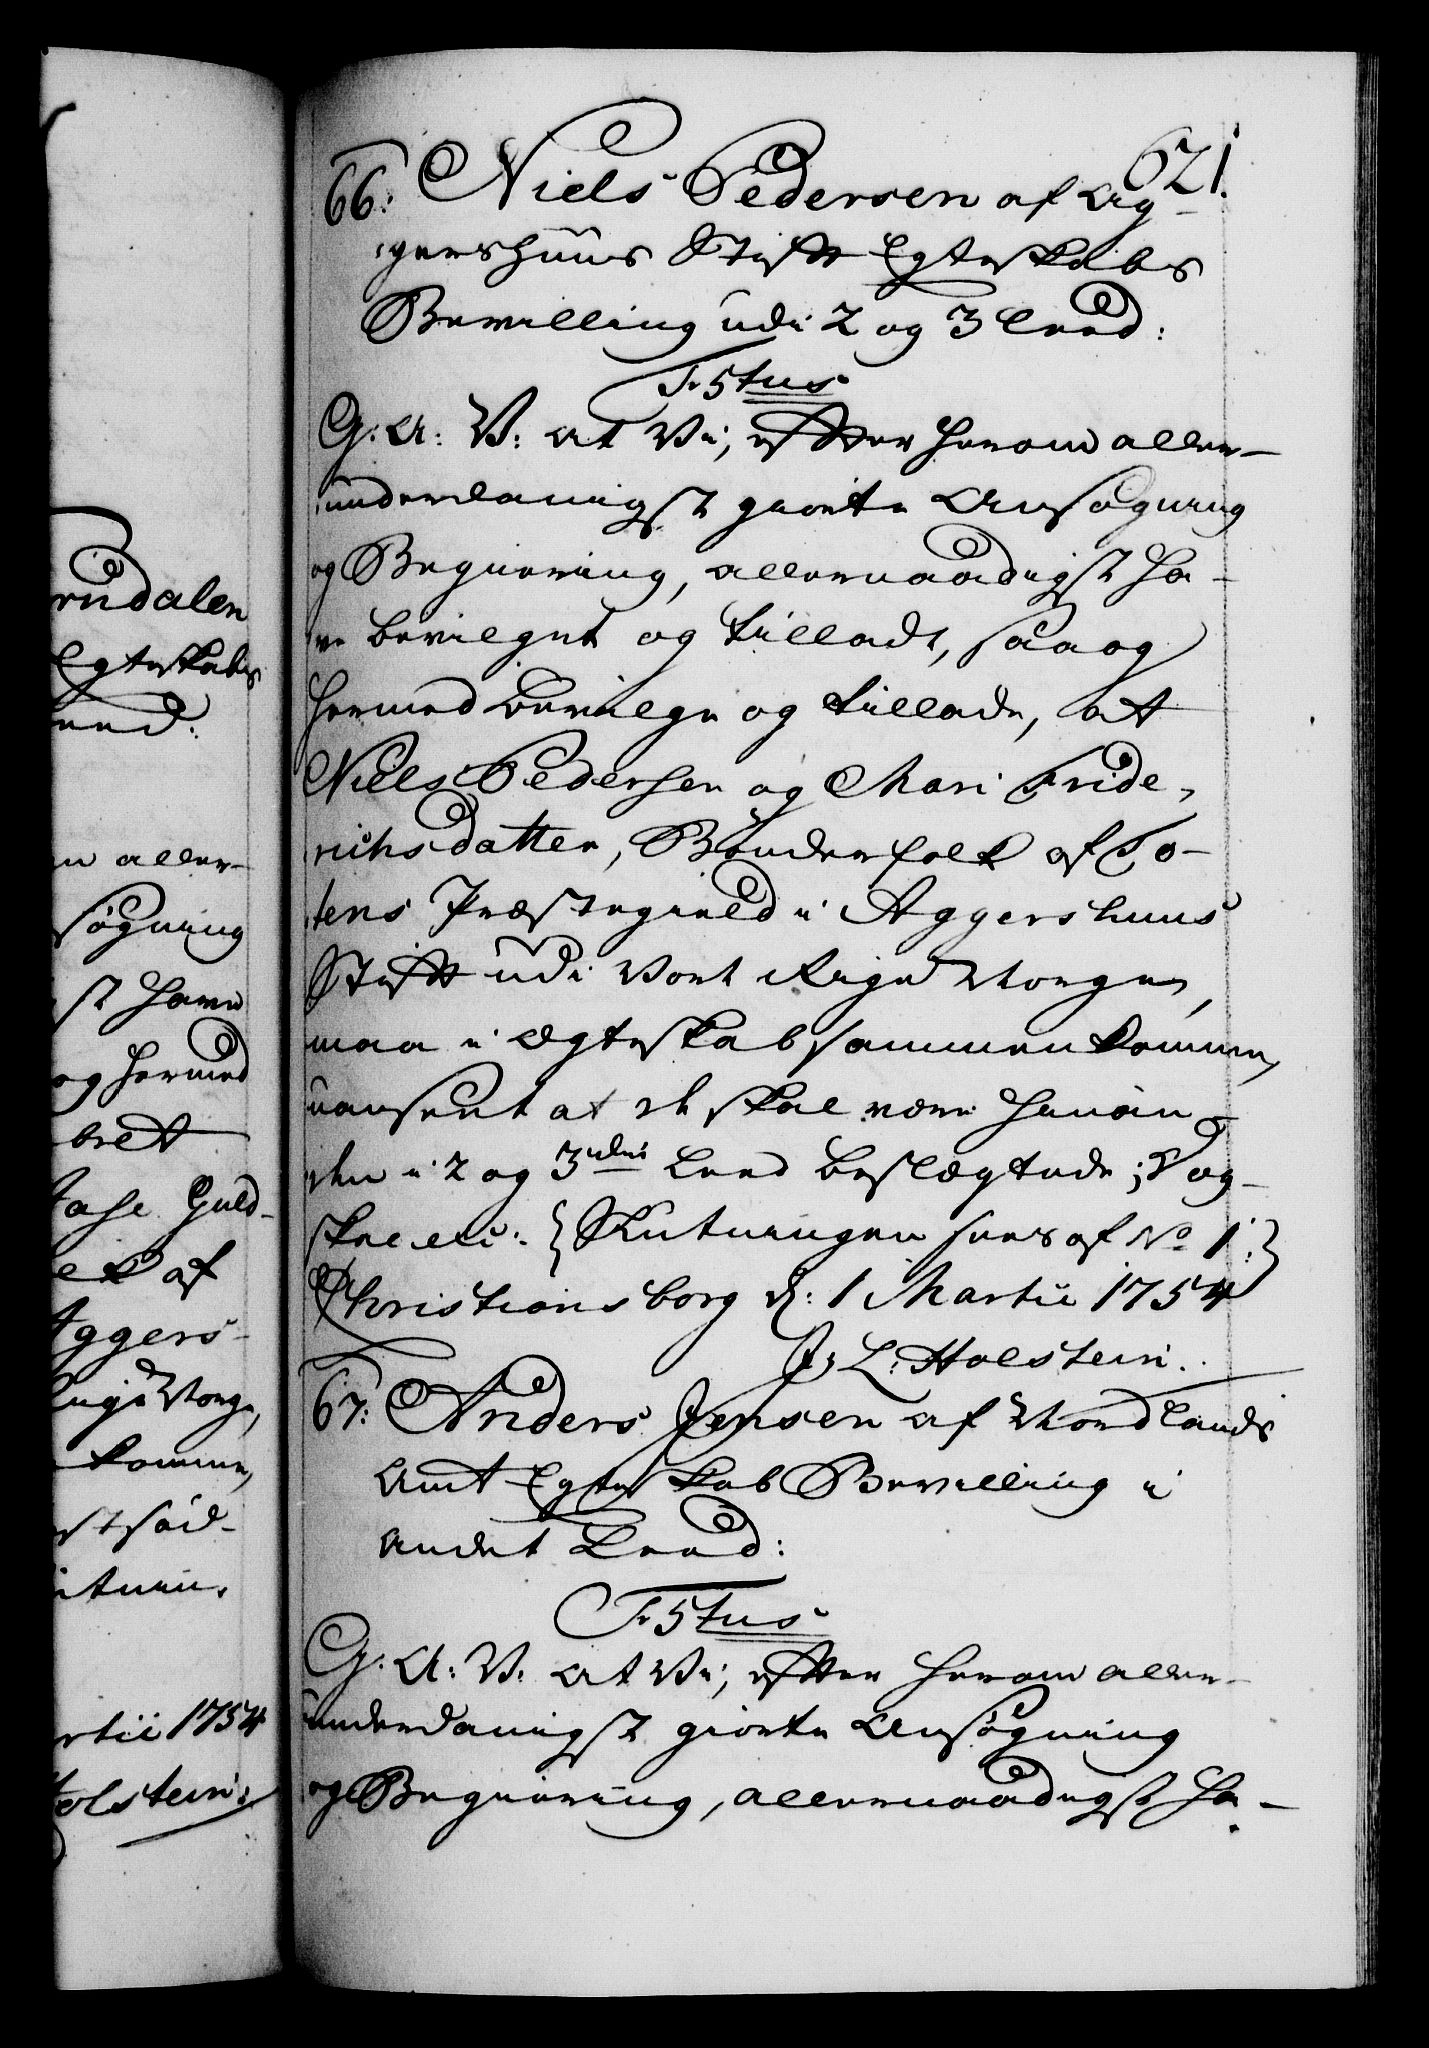 621.
66: Niels Pedersen af Ag-
gershuus Stift Egteskabs
Bevilling udi 2 og 3 Leed:
Fr 5tus
G: A: V: at Vi, efter herom aller-
underdanigst giorte Ansøgning
og Begiering, allernaadigst ha-
ve bevilget og tilladt, saa og
hermed bevilge og tillade, at
Niels Pedersen og Mari Fride-
richsdatter, Bønderfolk af To-
tens Præstegield i Aggershuus
Stift udi Vort Rige Norge,
maa i Ægteskab sammenkomme,
uanseet at de skal være hinan-
den i 2 og 3die Leed beslægtede; Dog
skal etc: {Slutningen sees af No 1:}
Christiansborg d: 1 Martii 1754
J: L: Holstein.
67: Anders Jensen af Nordlands
Amt Egteskab Bevilling i
andet Leed:
Fr 5tus
G: A: V: at Vi, efter herom aller-
underdanigst giorte Ansøgning
og Begiering, allernaadigst ha-
rndalen
Egteskabs
eed:
m aller-
søgning
st have
og hermed
bret
Guld-
af
Aggers-
Rige Norge,
komme,
rtii 1754
Holstein: